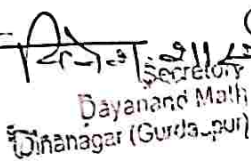 Secretary
Dayanand Math
Dinanagar (Gurdaspur)